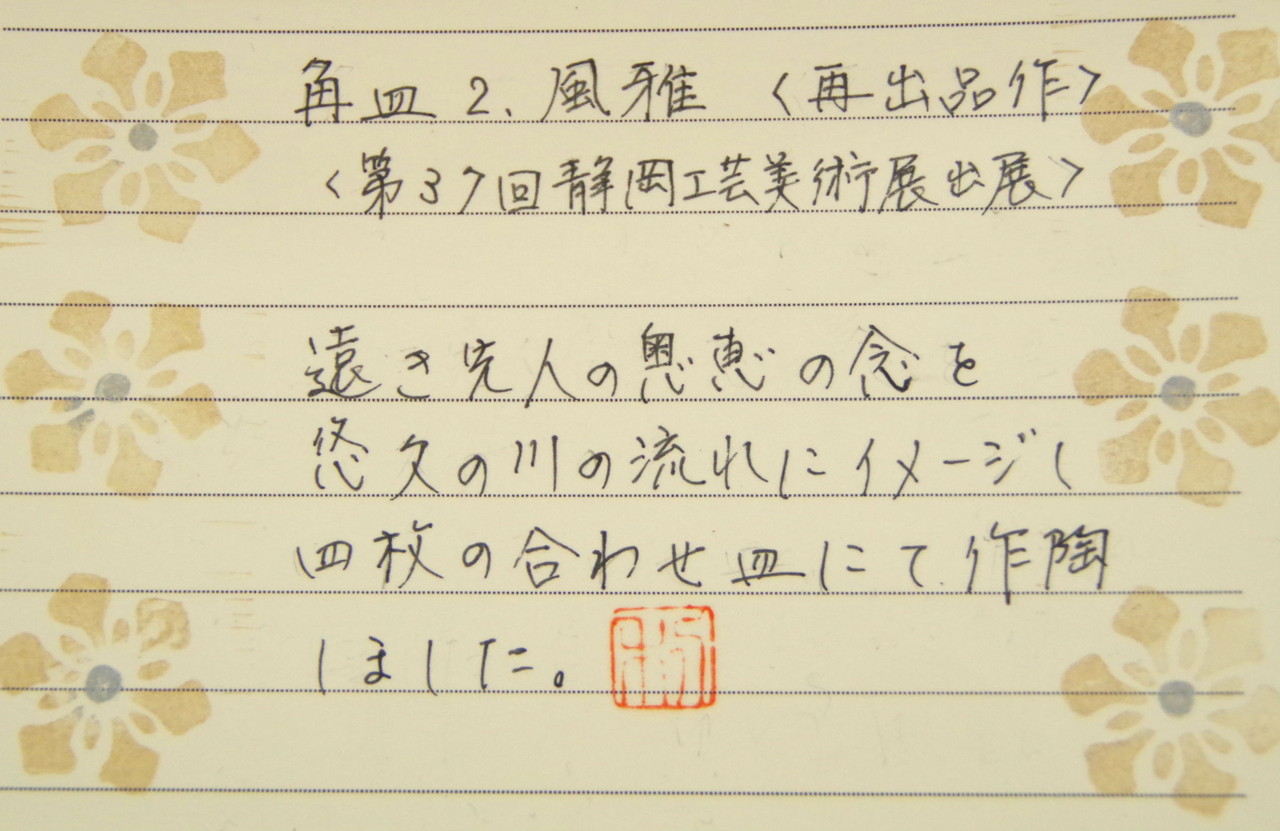 角皿2、風雅 〈再出品作〉
〈第37回静岡工芸美術展出展〉
遠き先人の恩恵の念を
悠久の川の流れにイメージし
四枚の合わせ皿にて作陶
しました。